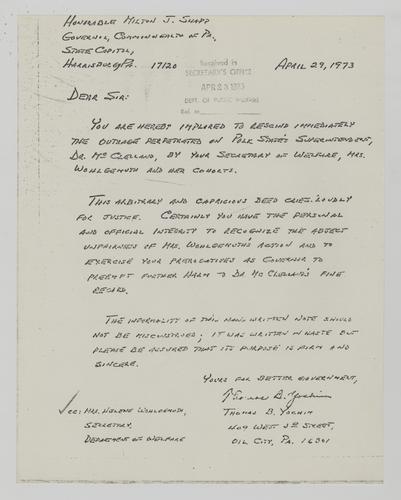 HONORABLE MILTON J. SHAPP
GOVERNOR, COMMONWEALTH OF PA.
STATE CAPITOL,
HARRISBURG, PA. 17120
APRIL 29, 1973
Received in
SECRETARY'S OFFICE
DEPT. OF PUBLIC WELFARE
Ref. to
DEAR SIR:
YOU ARE HEREBY IMPLORED TO RESCIND IMMEDIATELY
THE OUTRAGE PERPETRATED ON POLK STATE'S SUPERINTENDENT,
DR. MCCLELLAND, BY YOUR SECRETARY OF WELFARE, MRS.
WOHLGEMUTH AND HER COHORTS.
THIS ARBITRARY AND CAPRICIOUS DEED CRIES LOUDLY
FOR JUSTICE. CERTAINLY YOU HAVE THE PERSONAL
AND OFFICIAL INTEGRITY TO RECOGNIZE THE ABJECT
UNFAIRNESS OF MRS. WOHLGEMUTH'S ACTION AND TO
EXERCISE YOUR PREROGATIVES AS GOVERNOR TO
PREEMPT FURTHER HARM TO DR. MCCLELLAND'S FINE
RECORD.
THE INFORMALITY OF THIS HAND WRITTEN NOTE SHOULD
NOT BE MISCONSTRUED; IT WAS WRITTEN IN HASTE BUT
PLEASE BE ASSURED THAT ITS PURPOSE IS FIRM AND
SINCERE.
YOURS FOR BETTER GOVERNMENT,
Thomas B. Yochim
THOMAS B. YOCHIM
409 WEST 3RD STREET,
OIL CITY, PA. 16301
CC: MRS. HELENE WOHLGEMUTH,
SECRETARY,
DEPARTMENT OF WELFARE